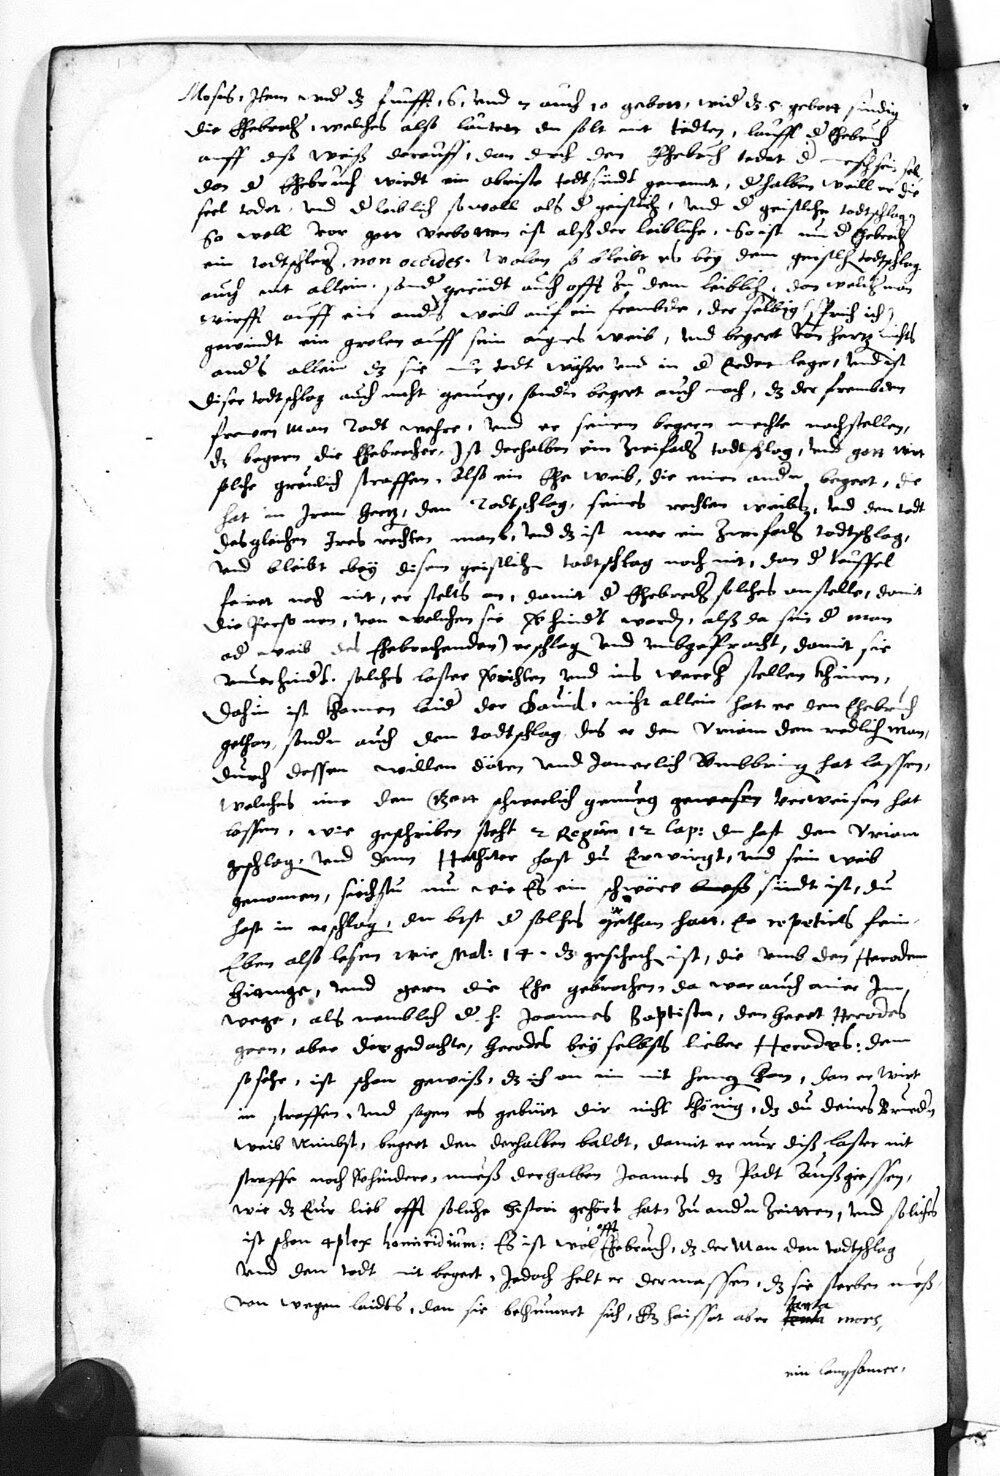 Moses, Item und dz funfft, 6, und 7 auch 10 gebott, wid dz 5 gebott sündig
die Ehebrech, welches also lautett du solt nit tödten, laufft d Ehebruch
auff dise weiß darauff, dan durch den Ehebruch tödet d mensch sein sel,
dan d Ehebruch wirdt ein obriste todtsündt genennt, derhalben weill er die
seel tödet, und d leiblich sowoll als d geistlich, und d geistliche todtschlag
So woll vor gott verbotten ist alß der leibliche. So ist nun d Ehebrech
ein todtschleg, non occides. bleibt es bey dem geistlich todtschlag
auch nit allein, sond geradt auch offt zu dem leiblich, dan welich man
wirfft auff ein anders weib auf ein frembde, der selbig (sprich ich)
gewindt ein grolen auff sein aignes weib, und begert von hertz nichts
anders allein dz sie nur todt wehre und in d Erden lege, und ist
diser todtschlag auch nicht genueg, sondern begert auch noch, dz der frembden
frawen Man todt wehre, und er seinem begern mechte nachstellen,
dz begern die Ehebrecher. Ist derhalben ein zweifach todtschlag, und gott wirt
solche greulich straffen. Also ein Ehe weib, die einen andern begert, die
hat in Irem hertz, den Todtschlag seines rechten weibs, und den todt
desgleichen Ires rechten mans, und dz ist nur ein zweifach todtschlag,
und bleibt bey disem geistlich todtschlag noch nit, dan d teuffel
feiret noch nit, er stelts an, damit d Ehebrech solches anstelle, damit
die Personen, von welchen sie verhindert werden, alß da sein d man
od weib des Ehebrechenden) erschlag und umbgebracht, damit sie
unverhindert solches laster verrichten und ins werch stellen khinen,
Dahin ist khomen laid der David, nicht allein hat er den Ehebruch
gethan, sondern auch den todtschlag, das er den Uriam den redlich man,
durch dessen willen döten und Jamerlich umbbring hat lassen,
welches ime dan Gott schwerlich genueg gewesen verweisen hat
lassen, wie geschriben steht 2 Regum 12 Cap: du hast den Uriam
geschlag, und dem Hethiter hast du Erwirgt, und sein weib
genomen, siechstu nun wie Es ein schwäre sündt ist, du
hast in erschlag, du bist d solches gethan hatt, Er repetiert fein.
Eben also lesen wir Mat: 14. dz geschech ist, die umb den Herodem
hienge, und gern die Ehe gebrochen, da war auch einer Im
wege, als nemblich d h. Joannes Baptista, den heert Herodes
gern, aber die gedachte, Herodes bey selbst lieber Herodes: dem
sehe, ist schon gewiß, dz ich an im nit heng kan, dan er wirt
in straffen, und sagen es gebürt dir nicht khönig, dz du deines Bruedern
weib Nimbst, begert den derhalben baldt, damit er nur diß laster nit
straffe noch verhindere, mueß derhalben Joannes dz Padt außgiessen,
wie dz Eur lieb offt solche histori gehört hat zu andern Zeitten, und solches
ist schon 4plex homicidium: Es ist wol offt Ehebruch, dz der Man den todtschlag
und den todt nit begert, Jedoch helt er dermassen, dz sie sterben mueß
von wegen laidts, dan sie bekhumert sich, Es haisset aber lenta mors,
ein langsamer,